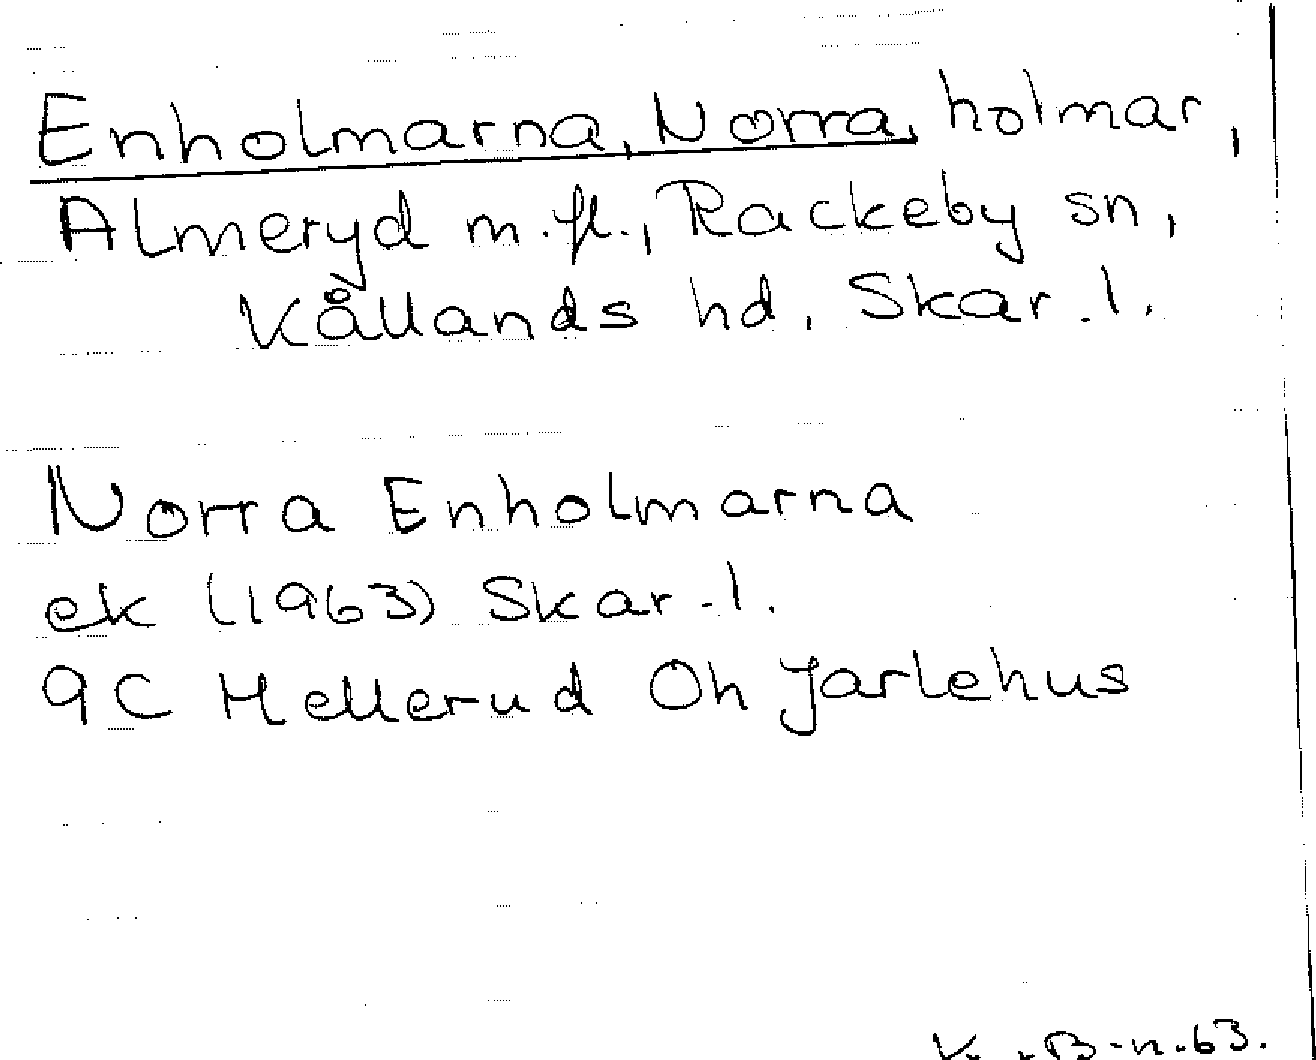 Enholmarna, Norra, holmar,
Almeryd m.fl., Rackeby sn,
Kållands hd, Skar. l.
Norra Enholmarna
ek (1963) Skar. l.
9C Hellerud Oh Jarlehus
K. .B-n.63.